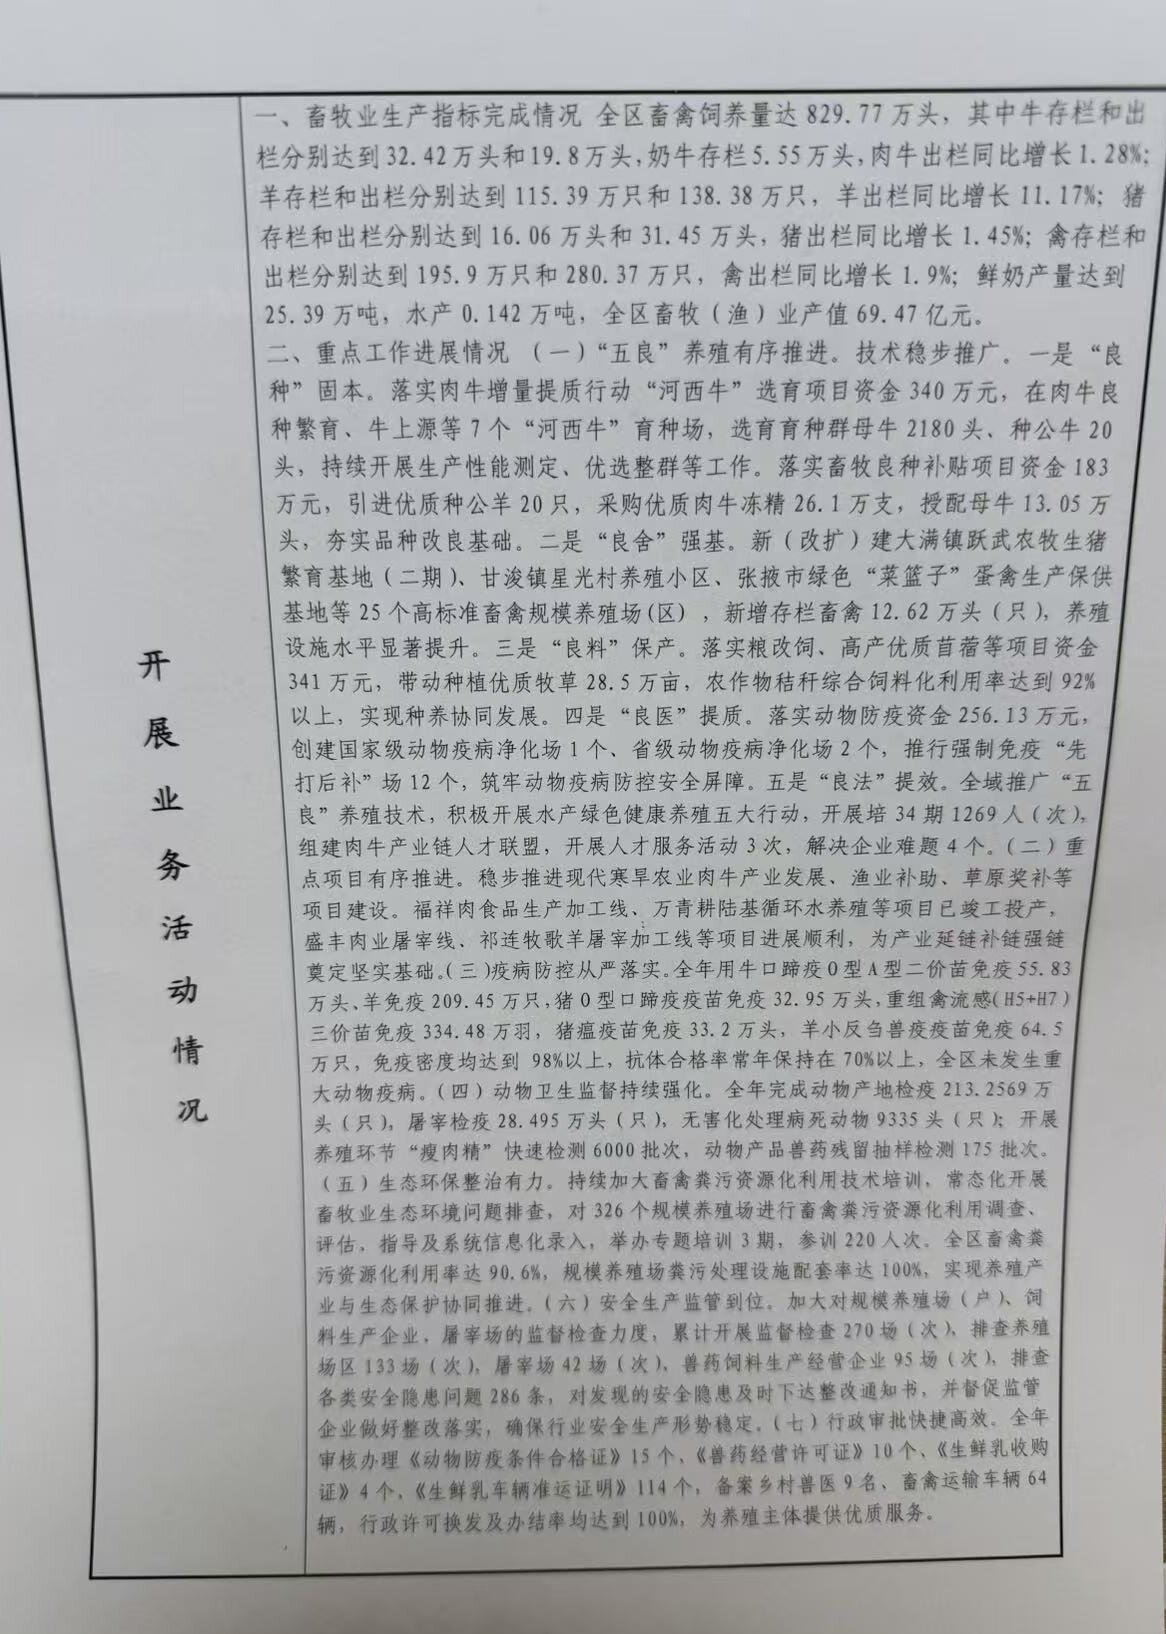 开展业务活动情况
一、畜牧业生产指标完成情况 全区畜禽饲养量达 829.77 万头，其中牛存栏和出
栏分别达到 32.42 万头和 19.8 万头,奶牛存栏 5.55 万头,肉牛出栏同比增长 1.28%;
羊存栏和出栏分别达到 115.39 万只和 138.38 万只，羊出栏同比增长 11.17%; 猪
存栏和出栏分别达到 16.06 万头和 31.45 万头，猪出栏同比增长 1.45%; 禽存栏和
出栏分别达到 195.9 万只和 280.37 万只，禽出栏同比增长 1.9%; 鲜奶产量达到
25.39 万吨，水产 0.142 万吨，全区畜牧（渔）业产值 69.47 亿元。
二、重点工作进展情况 （一）“五良”养殖有序推进。技术稳步推广。一是“良
种”固本。落实肉牛增量提质行动“河西牛”选育项目资金 340 万元，在肉牛良
种繁育、牛上源等 7 个“河西牛”育种场，选育育种群母牛 2180 头、种公牛 20
头，持续开展生产性能测定、优选整群等工作。落实畜牧良种补贴项目资金 183
万元，引进优质种公羊 20 只，采购优质肉牛冻精 26.1 万支，授配母牛 13.05 万
头，夯实品种改良基础。二是“良舍”强基。新（改扩）建大满镇跃武农牧生猪
繁育基地（二期）、甘浚镇星光村养殖小区、张掖市绿色“菜篮子”蛋禽生产保供
基地等 25 个高标准畜禽规模养殖场(区），新增存栏畜禽 12.62 万头（只），养殖
设施水平显著提升。三是“良料”保产。落实粮改饲、高产优质苜蓿等项目资金
341 万元，带动种植优质牧草 28.5 万亩，农作物秸秆综合饲料化利用率达到 92%
以上，实现种养协同发展。四是“良医”提质。落实动物防疫资金 256.13 万元，
创建国家级动物疫病净化场 1 个、省级动物疫病净化场 2 个，推行强制免疫“先
打后补”场 12 个，筑牢动物疫病防控安全屏障。五是“良法”提效。全域推广“五
良”养殖技术，积极开展水产绿色健康养殖五大行动，开展培 34 期 1269 人（次），
组建肉牛产业链人才联盟，开展人才服务活动 3 次，解决企业难题 4 个。（二）重
点项目有序推进。稳步推进现代寒旱农业肉牛产业发展、渔业补助、草原奖补等
项目建设。福祥肉食品生产加工线、万青耕陆基循环水养殖等项目已竣工投产，
盛丰肉业屠宰线、祁连牧歌羊屠宰加工线等项目进展顺利，为产业延链补链强链
奠定坚实基础。（三）疫病防控从严落实。全年用牛口蹄疫 O 型 A 型二价苗免疫 55.83
万头、羊免疫 209.45 万只,猪 O 型口蹄疫疫苗免疫 32.95 万头,重组禽流感(H5+H7)
三价苗免疫 334.48 万羽，猪瘟疫苗免疫 33.2 万头，羊小反刍兽疫疫苗免疫 64.5
万只，免疫密度均达到 98%以上，抗体合格率常年保持在 70%以上，全区未发生重
大动物疫病。（四）动物卫生监督持续强化。全年完成动物产地检疫 213.2569 万
头（只），屠宰检疫 28.495 万头（只），无害化处理病死动物 9335 头（只）；开展
养殖环节“瘦肉精”快速检测 6000 批次，动物产品兽药残留抽样检测 175 批次。
（五）生态环保整治有力。持续加大畜禽粪污资源化利用技术培训，常态化开展
畜牧业生态环境问题排查，对 326 个规模养殖场进行畜禽粪污资源化利用调查、
评估，指导及系统信息化录入，举办专题培训 3 期，参训 220 人次。全区畜禽粪
污资源化利用率达 90.6%，规模养殖场粪污处理设施配套率达 100%，实现养殖产
业与生态保护协同推进。（六）安全生产监管到位。加大对规模养殖场（户）、饲
料生产企业，屠宰场的监督检查力度，累计开展监督检查 270 场（次），排查养殖
场区 133 场（次），屠宰场 42 场（次），兽药饲料生产经营企业 95 场（次），排查
各类安全隐患问题 286 条，对发现的安全隐患及时下达整改通知书，并督促监管
企业做好整改落实，确保行业安全生产形势稳定。（七）行政审批快捷高效。全年
审核办理《动物防疫条件合格证》15 个、《兽药经营许可证》10 个、《生鲜乳收购
证》4 个、《生鲜乳车辆准运证明》114 个，备案乡村兽医 9 名、畜禽运输车辆 64
辆，行政许可换发及办结率均达到 100%，为养殖主体提供优质服务。